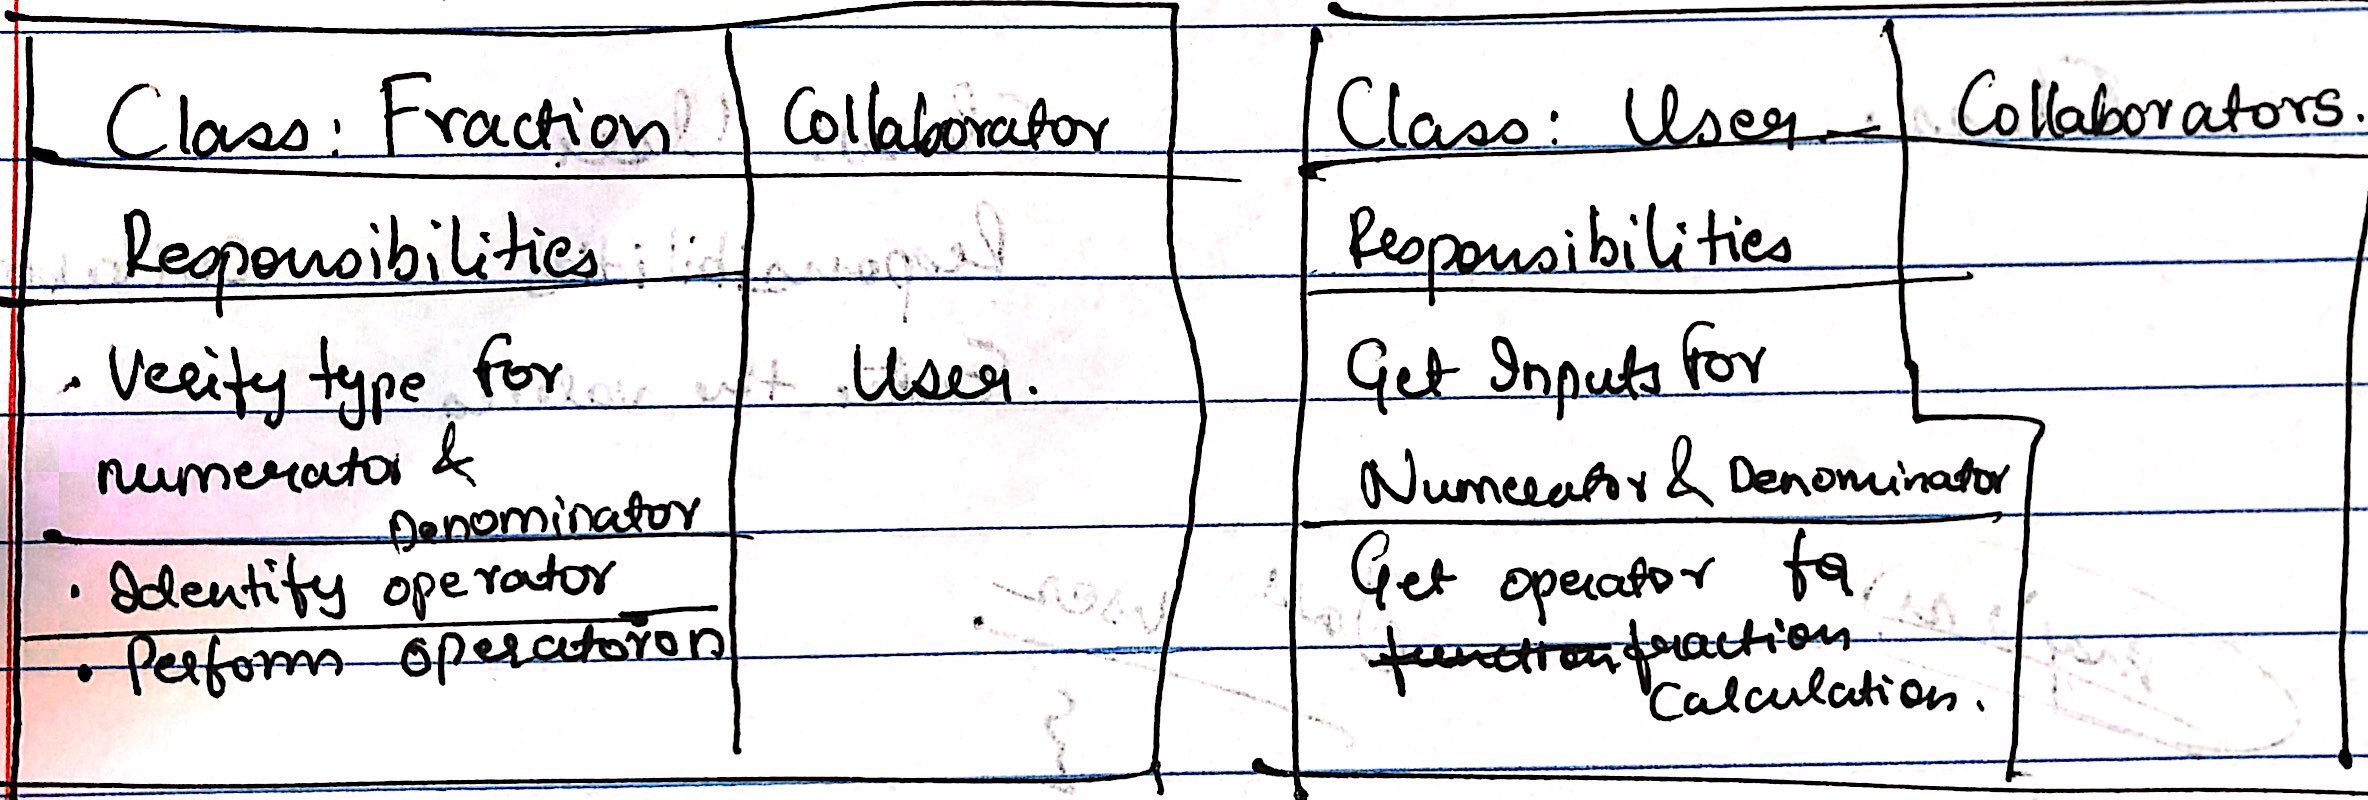 Class: Fraction
Collaborator
Responsibilities
. Verify type for
User.
numerator &
Denominator
. Identify operator
. Perform operatoron
Class: User
Collaborators.
Responsibilities
Get Inputs for
Numerator & Denominator
Get operator for
function fraction
Calculation.